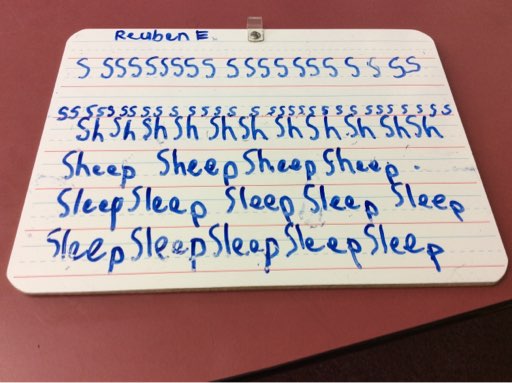 Reuben E.
S SSSSSSSS SSSSSSS S S SS
ss ssss ss s s s s s s s s sssssss s sss s s s s
Sh Sh Sh Sh Sh Sh Sh Sh Sh Sh Sh
Sheep Sheep Sheep Sheep.
Sleep Sleep Sleep Sleep Sleep
Sleep Sleep Sleep Sleep Sleep